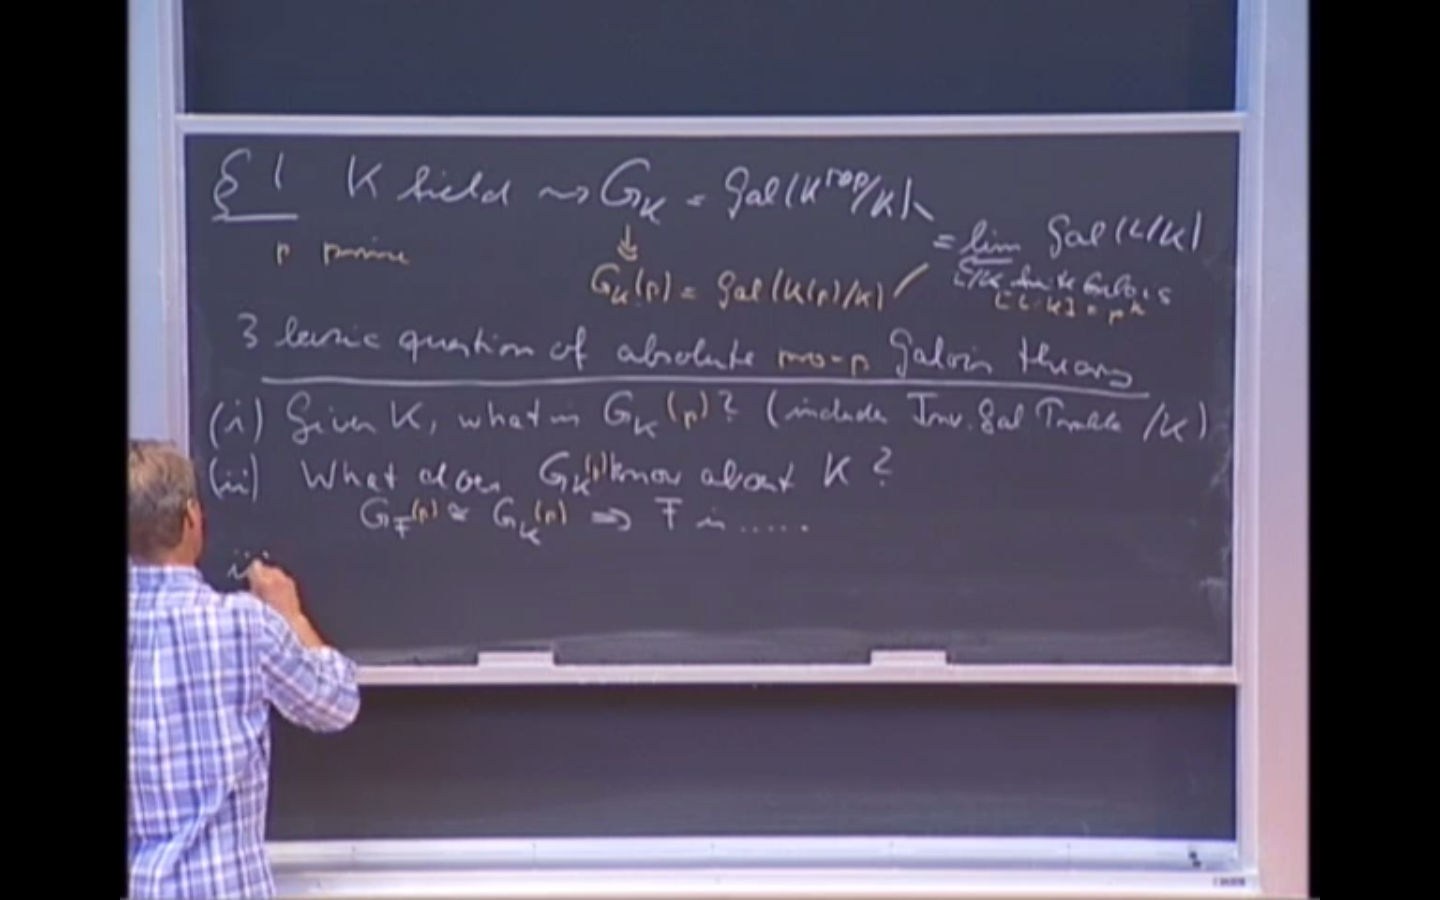 §1 K field ⇝ G_K = Gal(K^sep/K)
= lim Gal(L/K)
p prime
G_K(p) = Gal(K(p)/K)
L/K finite Galois
[L:K] = p^n
3 basic question of absolute pro-p Galois theory
(i) Given K, what is G_K(p)? (include Inv. Gal Problem /K)
(ii) What does G_K(p) know about K?
G_F(p) ≅ G_K(p) ⇒ F is .....